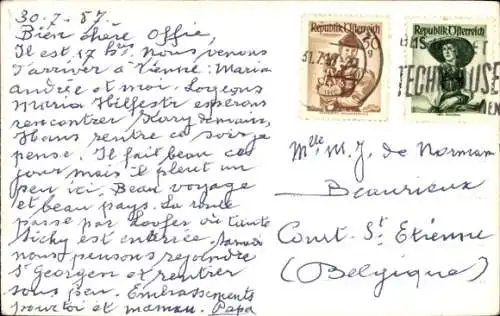 30.7.57.
Bien chère Offie,
Il est 17 hrs. Nous venons
d'arriver à Vienne: Maria
Andrée et moi. Logeons
Maria Hilfestr espérons
rencontrer Mary demain,
Hans rentre ce soir je
pense. Il fait beau ce
jour mais il pleut un
peu ici. Beau voyage
et beau pays. La route
passe par où tante
est enterrée. Samedi
nous pensons rejoindre
St Georgen et rentrer
sous peu. Embrassements
pour toi et maman. Papa
REPUBLIK ÖSTERREICH
REPUBLIK ÖSTERREICH
Mlle M.J. de Norman
Beaurieux
Court-St Etienne
(Belgique)